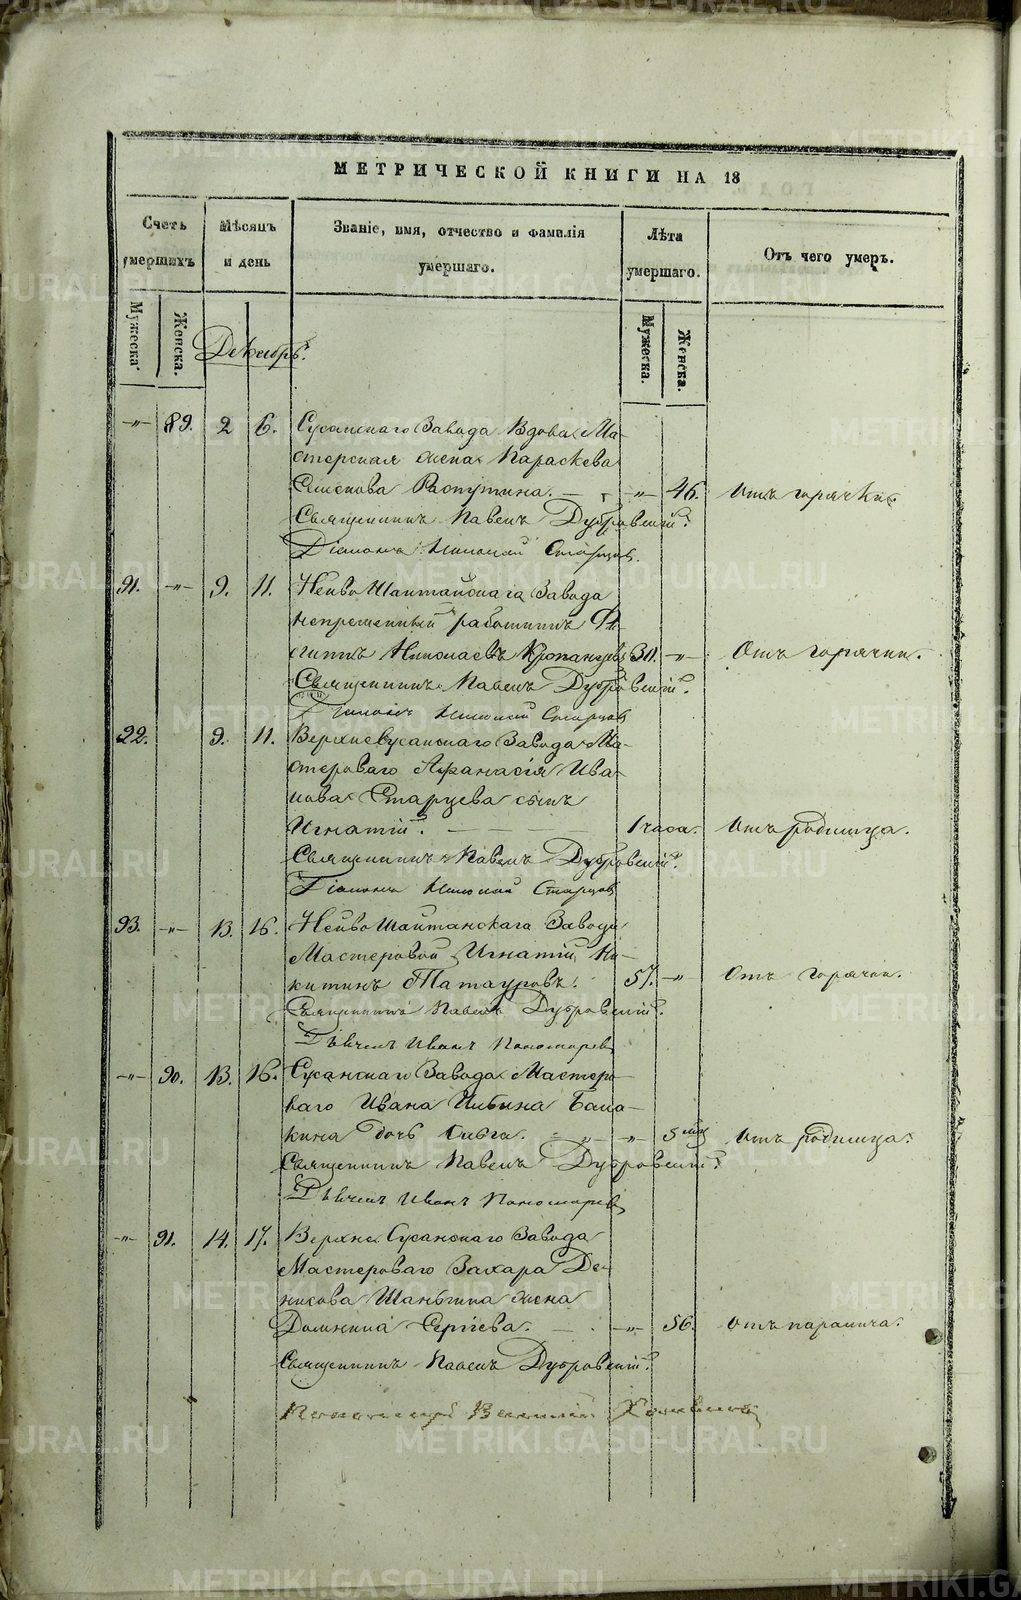 МЕТРИЧЕСКОЙ КНИГИ НА 18
Счетъ умершихъ
Мѣсяцъ и день
Званіе, имя, отчество и фамилія умершаго.
Лѣта умершаго.
Отъ чего умеръ.
Мужеска.
Женска.
Мужеска.
Женска.
Декабрь.
-"- 89. 2 6. Сусанскаго Завода Вдова Ма-
стерская жена Параскева
Распутина. — -"- 46. Отъ горячки.
Священникъ Павелъ Дубровскій
Діаконъ Николай Старцовъ.
91. -"- 9. 11. Нейво Шайтанскаго Завода
непременный работникъ
Николаевъ 30. -"- Отъ горячки.
Священникъ Павелъ Дубровскій.
Діаконъ Николай Старцовъ
22. 9. 11. Верхне Сусанскаго Завода Ма-
стероваго Афанасія Ива-
нова Старцева сынъ
Игнатій. — 1 часа. Отъ родимца.
Священникъ Павелъ Дубровскій
Діаконъ Николай Старцовъ
93. -"- 13. 16. Нейво Шайтанскаго Завода
Мастеровой Игнатій Ни-
китинъ Татауровъ. 57. -"- Отъ горячки.
Священникъ Павелъ Дубровскій
Дьячекъ Иванъ Пономаревъ
-"- 90. 13. 16. Сусанскаго Завода Мастеро-
ваго Ивана
дочь -"- 5 Отъ родимца.
Священникъ Павелъ Дубровскій
Дьячекъ Иванъ Пономаревъ
-"- 91. 14. 17. Верхне Сусанскаго Завода
Мастероваго Захара Де-
нисова Шаньгина жена
Домнина Сергіева. — -"- 56. Отъ паралича.
Священникъ Павелъ Дубровскій
Пономарь Василій
METRIKI.GASO-URAL.RU